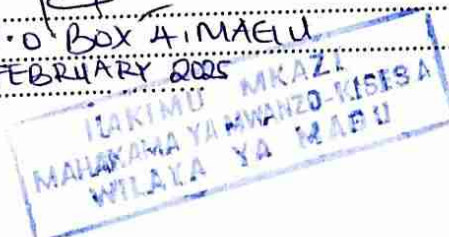 .O BOX 4, MAGU
FEBRUARY 2025
HAKIMU MKAZI
MAHAKAMA YA MWANZO-KISESA
WILAYA YA MAGU